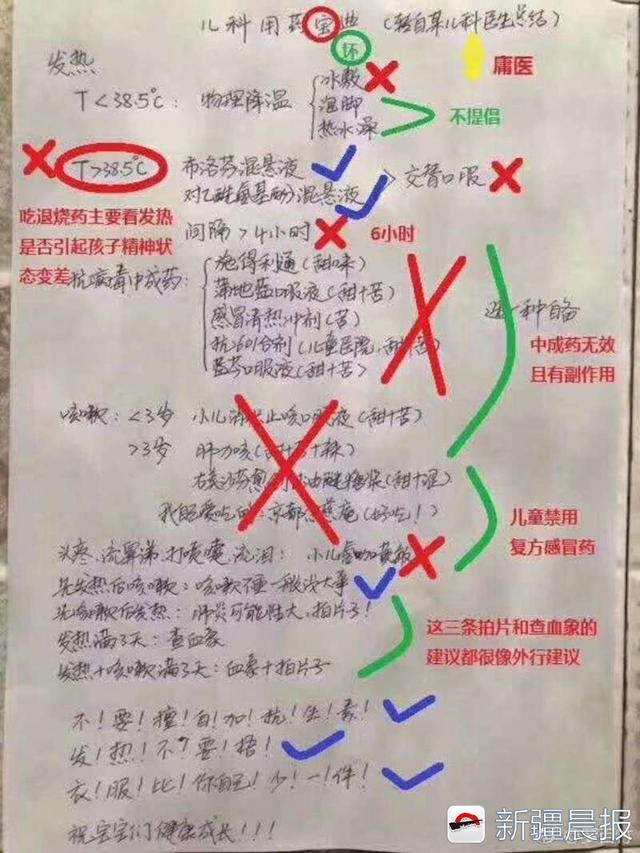 儿科用药宝典（转自某儿科医生总结）
坏
庸医
发热
T<38.5℃：物理降温
冰敷
泡脚
热水澡
不提倡
T>38.5℃
布洛芬混悬液
对乙酰氨基酚混悬液
交替口服
吃退烧药主要看发热
是否引起孩子精神状
态变差
间隔>4小时
6小时
抗病毒中成药：
施得利通（甜味）
蒲地蓝口服液（甜+苦）
感冒清热冲剂（苦）
抗601合剂（儿童医院,甜+苦）
蓝芩口服液（甜+苦）
选一种自备
中成药无效
且有副作用
咳嗽：<3岁 小儿消积止咳口服液（甜+苦）
>3岁 肺力咳
右美沙芬愈创甘油醚糖浆
我自己爱吃的：京都念慈庵（好吃！）
儿童禁用
复方感冒药
头疼、流鼻涕、打喷嚏、流泪：小儿
先发热后咳嗽：咳嗽便一般没大事
先咳嗽后发热：肺炎可能性大，拍片子！
发热满3天：查血象
发热+咳嗽满3天：血象+拍片子
这三条拍片和查血象的
建议都很像外行建议
不！要！擅！自！加！抗！生！素！
发！热！不！要！捂！
衣！服！比！你自己！少！一！件！
祝宝宝们健康成长！！！
新疆晨报